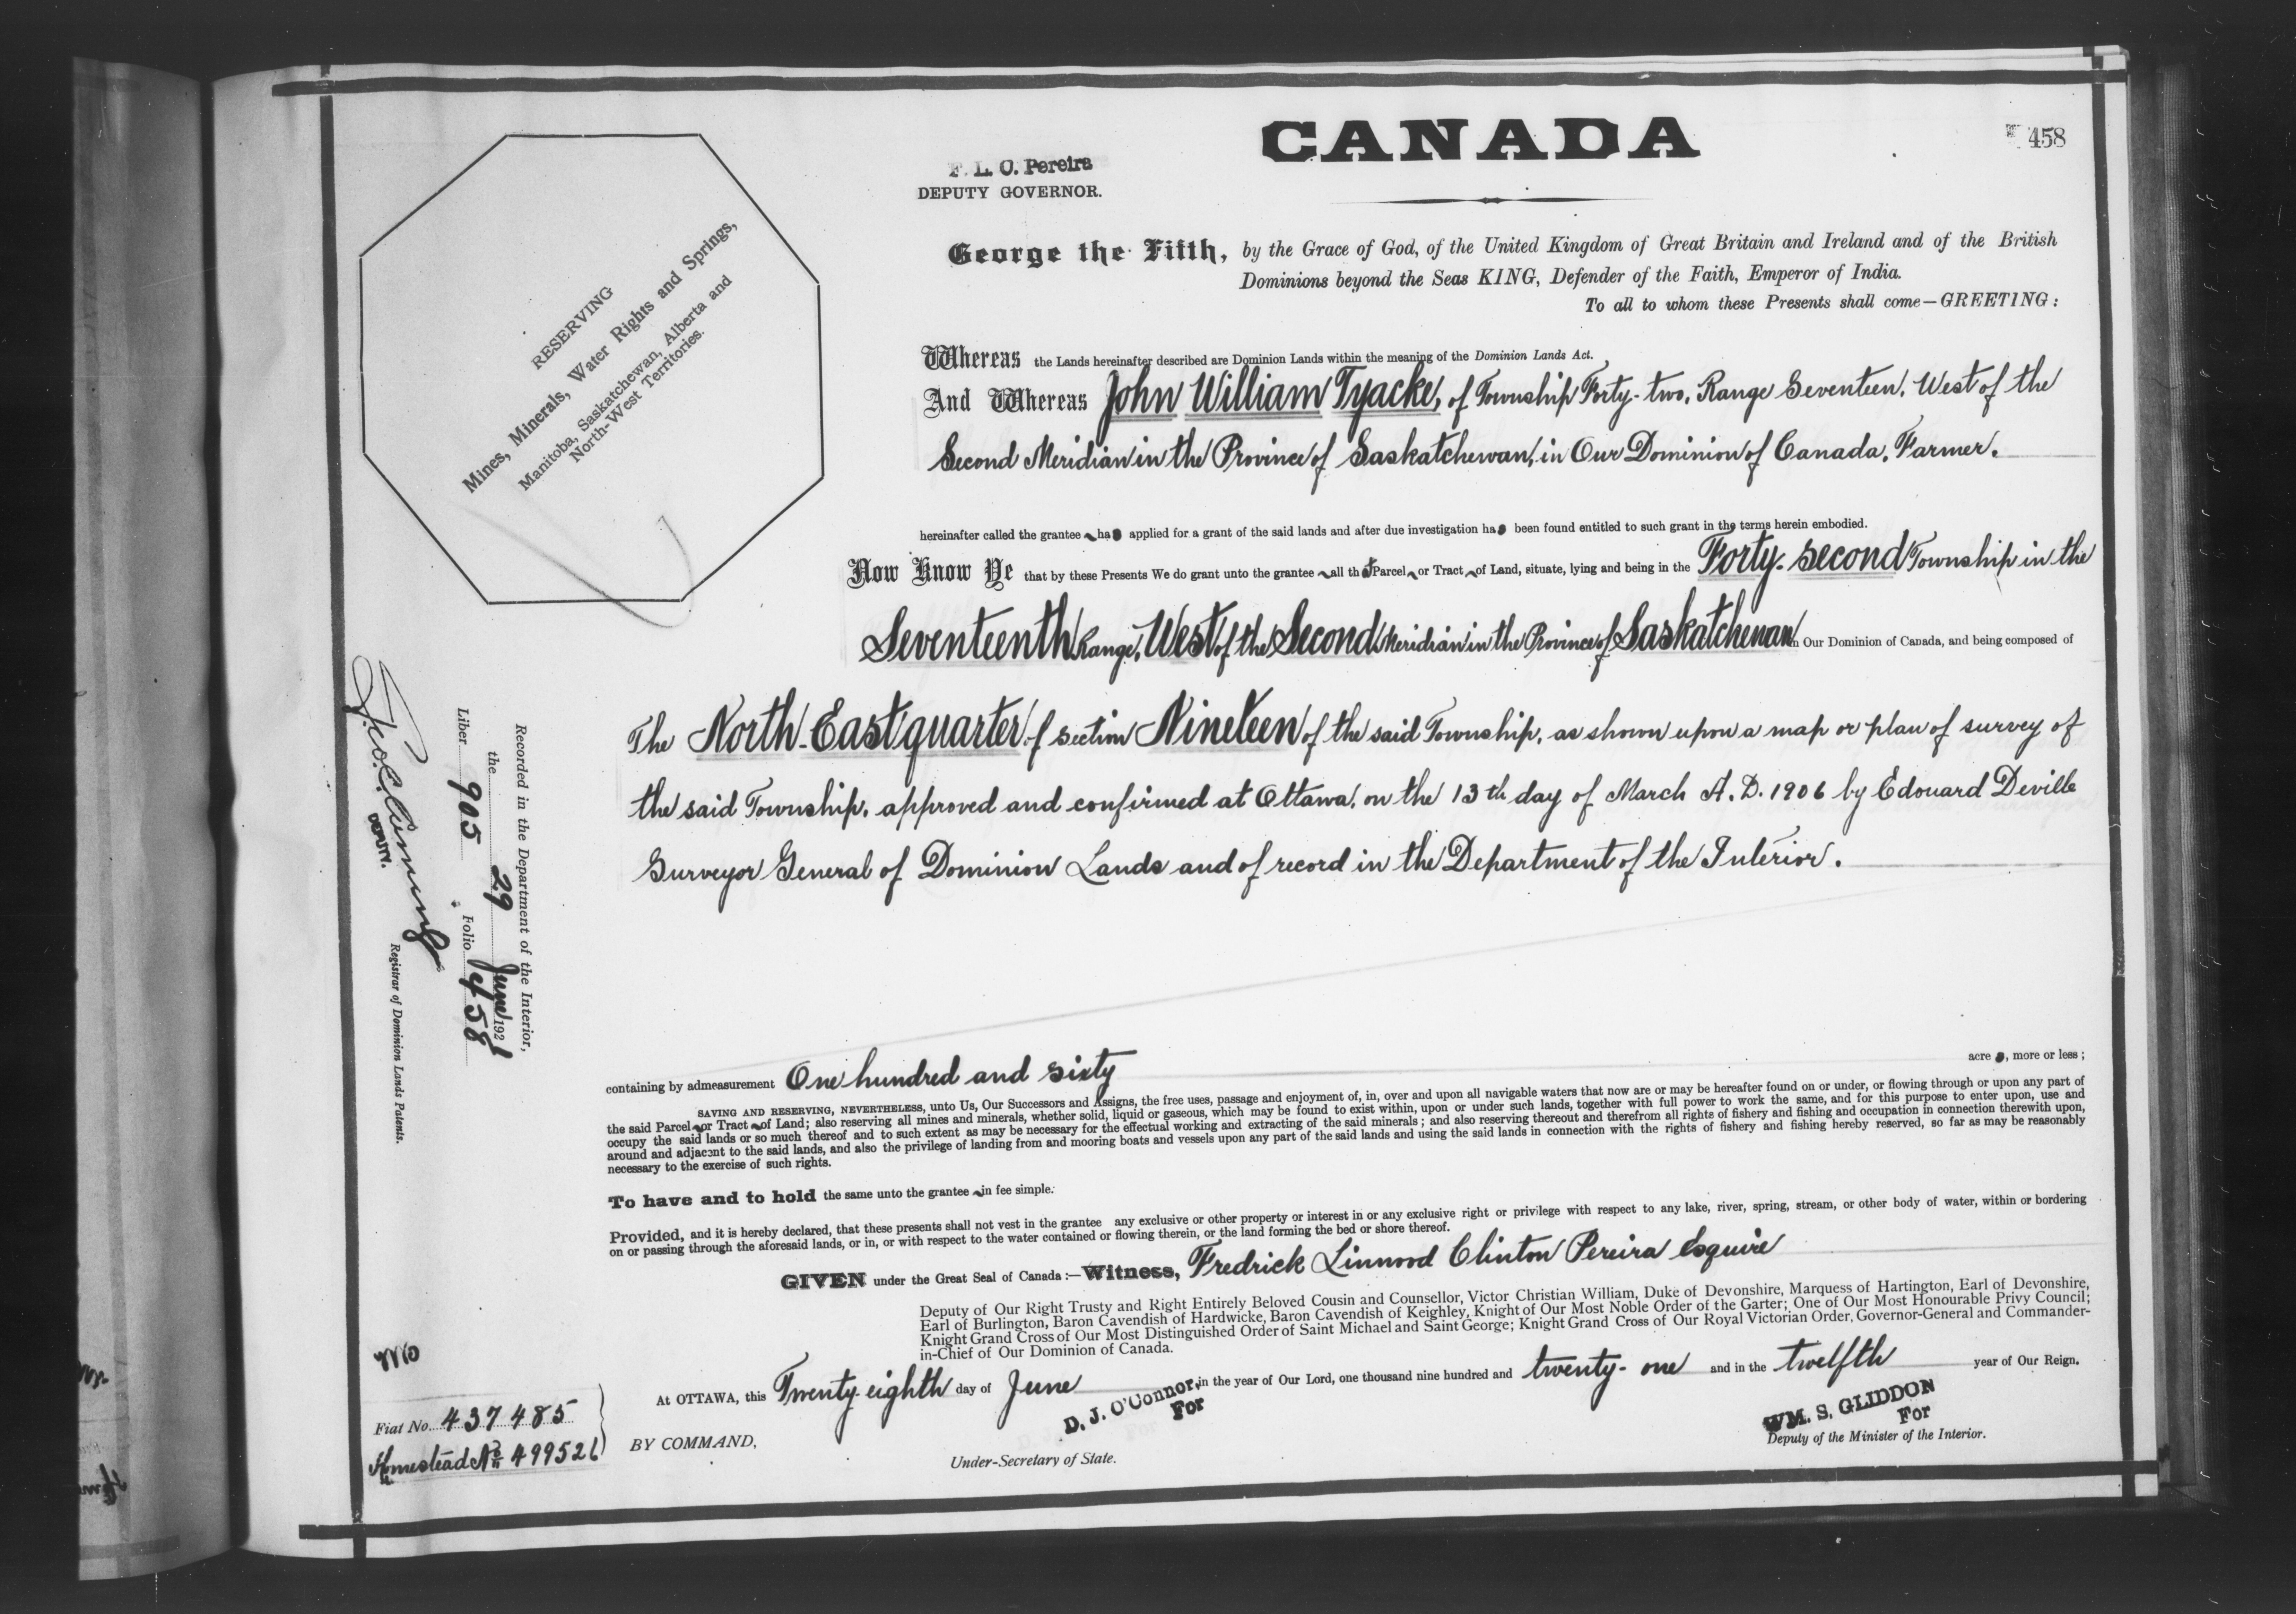 CANADA
458
F. L. C. Pereira
DEPUTY GOVERNOR.
RESERVING
Mines, Minerals, Water Rights and Springs,
Manitoba, Saskatchewan, Alberta and
North-West Territories.
George the Fifth, by the Grace of God, of the United Kingdom of Great Britain and Ireland and of the British
Dominions beyond the Seas KING, Defender of the Faith, Emperor of India.
To all to whom these Presents shall come—GREETING:
Whereas the Lands hereinafter described are Dominion Lands within the meaning of the Dominion Lands Act.
And Whereas John William Tyacke, of Township Forty-two, Range Seventeen, West of the
Second Meridian in the Province of Saskatchewan, in Our Dominion of Canada, Farmer.
hereinafter called the grantee has applied for a grant of the said lands and after due investigation has been found entitled to such grant in the terms herein embodied.
Now Know Ye that by these Presents We do grant unto the grantee all that Parcel or Tract of Land, situate, lying and being in the Forty-second Township in the
Seventeenth Range, West of the Second Meridian in the Province of Saskatchewan in Our Dominion of Canada, and being composed of
The North-East quarter of section Nineteen of the said Township, as shown upon a map or plan of survey of
the said Township, approved and confirmed at Ottawa, on the 13th day of March A.D. 1906 by Edouard Deville
Surveyor General of Dominion Lands and of record in the Department of the Interior.
Recorded in the Department of the Interior,
the 29 June 1921
Liber 905 Folio 458
DEPUTY.
Registrar of Dominion Lands Patents.
containing by admeasurement One hundred and sixty acres, more or less;
SAVING AND RESERVING, NEVERTHELESS, unto Us, Our Successors and Assigns, the free uses, passage and enjoyment of, in, over and upon all navigable waters that now are or may be hereafter found on or under, or flowing through or upon any part of
the said Parcel or Tract of Land; also reserving all mines and minerals, whether solid, liquid or gaseous, which may be found to exist within, upon or under such lands, together with full power to work the same, and for this purpose to enter upon, use and
occupy the said lands or so much thereof and to such extent as may be necessary for the effectual working and extracting of the said minerals; and also reserving thereout and therefrom all rights of fishery and fishing and occupation in connection therewith upon,
around and adjacent to the said lands, and also the privilege of landing from and mooring boats and vessels upon any part of the said lands and using the said lands in connection with the rights of fishery and fishing hereby reserved, so far as may be reasonably
necessary to the exercise of such rights.
To have and to hold the same unto the grantee in fee simple.
Provided, and it is hereby declared, that these presents shall not vest in the grantee any exclusive or other property or interest in or any exclusive right or privilege with respect to any lake, river, spring, stream, or other body of water, within or bordering
on or passing through the aforesaid lands, or in, or with respect to the water contained or flowing therein, or the land forming the bed or shore thereof.
GIVEN under the Great Seal of Canada:—Witness, Fredrick Linwood Clinton Pereira Esquire
Deputy of Our Right Trusty and Right Entirely Beloved Cousin and Counsellor, Victor Christian William, Duke of Devonshire, Marquess of Hartington, Earl of Devonshire,
Earl of Burlington, Baron Cavendish of Hardwicke, Baron Cavendish of Keighley, Knight of Our Most Noble Order of the Garter; One of Our Most Honourable Privy Council;
Knight Grand Cross of Our Most Distinguished Order of Saint Michael and Saint George; Knight Grand Cross of Our Royal Victorian Order, Governor-General and Commander-
in-Chief of Our Dominion of Canada.
At OTTAWA, this Twenty eighth day of June in the year of Our Lord, one thousand nine hundred and twenty-one and in the twelfth year of Our Reign.
D. J. O'Connor,
For
WM. S. GLIDDON
For
BY COMMAND,
Under-Secretary of State.
Deputy of the Minister of the Interior.
Fiat No. 437485
Homestead No 499526